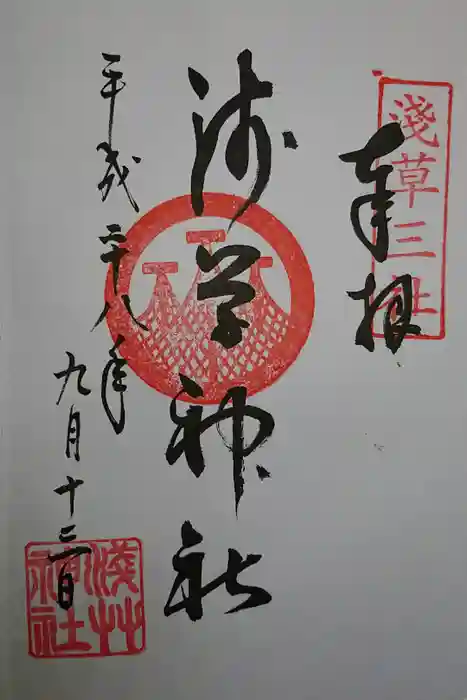 淺草三社
奉拝
浅草神社
平成二十八年
九月十三日
淺艸
神社